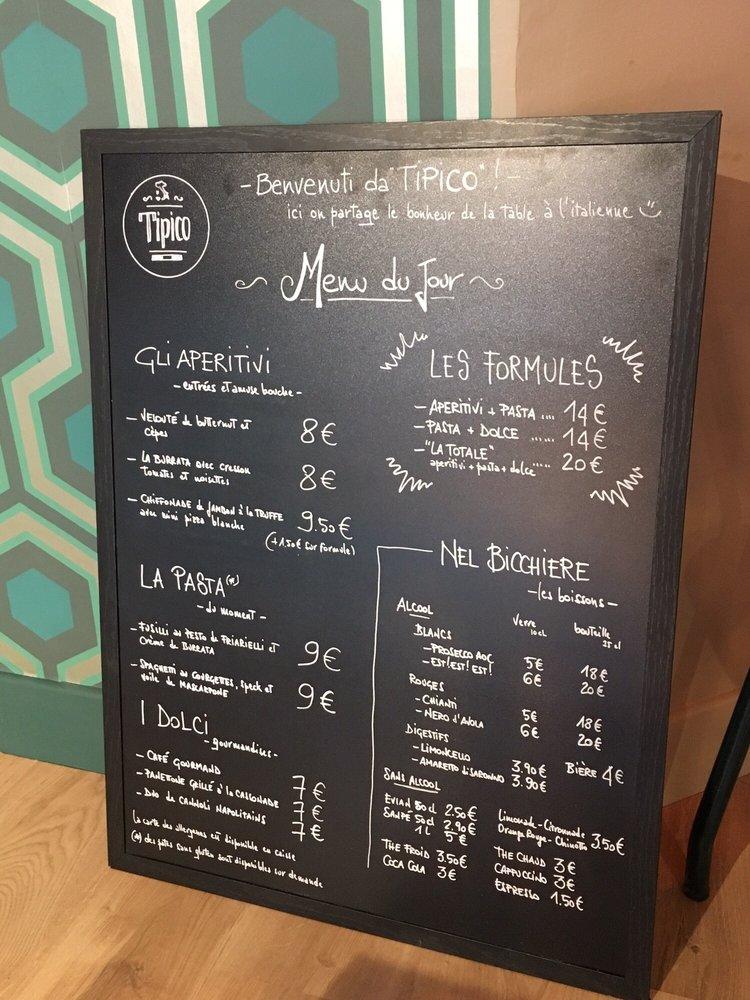 Tipico
- Benvenuti da "TIPICO" ! -
ici on partage le bonheur de la table à l'italienne
Menu du Jour
GLI APERITIVI
- entrées et amuse bouche -
- VELOUTÉ de butternut et
cèpes 8€
- LA BURRATA avec cresson
tomates et noisettes 8€
- CHIFFONADE de JAMBON à la TRUFFE
avec mini pizza blanche 9.50€
(+1.50€ sur formule)
LA PASTA(*)
- du moment -
- FUSILLI au PESTO de FRIARIELLI et
CRÈME de BURRATA 9€
- SPAGHETTI au COURGETTES, speck et
voile de MASCARPONE 9€
I DOLCI
- gourmandises -
- CAFÉ GOURMAND 7€
- PANETONE GRILLÉ à la CASSONADE 7€
- DUO de CANNOLI NAPOLITAINS 7€
la carte des allergenes est disponible en caisse
(*) des pâtes sans gluten sont disponibles sur demande
LES FORMULES
- APERITIVI + PASTA .... 14€
- PASTA + DOLCE ...... 14€
- "LA TOTALE"
aperitivi + pasta + dolce ..... 20€
NEL BICCHIERE
- les boissons -
ALCOOL
verre bouteille
10 cl 75 cl
BLANCS
- PROSECCO AOC 5€ 18€
- EST!EST!EST! 6€ 20€
ROUGES
- CHIANTI 5€ 18€
- NERO d'AVOLA 6€ 20€
DIGESTIFS
- LIMONCELLO 3.90€
- AMARETTO di SARONNO 3.90€
BIÈRE 4€
SANS ALCOOL
EVIAN 50 cl 2.50€
SANPÉ 50cl 2.90€
1 L 5€
THE FROID 3.50€
COCA COLA 3€
Limonade - Citronnade
Orange Rouge - Chinotto 3.50€
THE CHAUD 3€
CAPPUCCINO 3€
ESPRESSO 1.50€